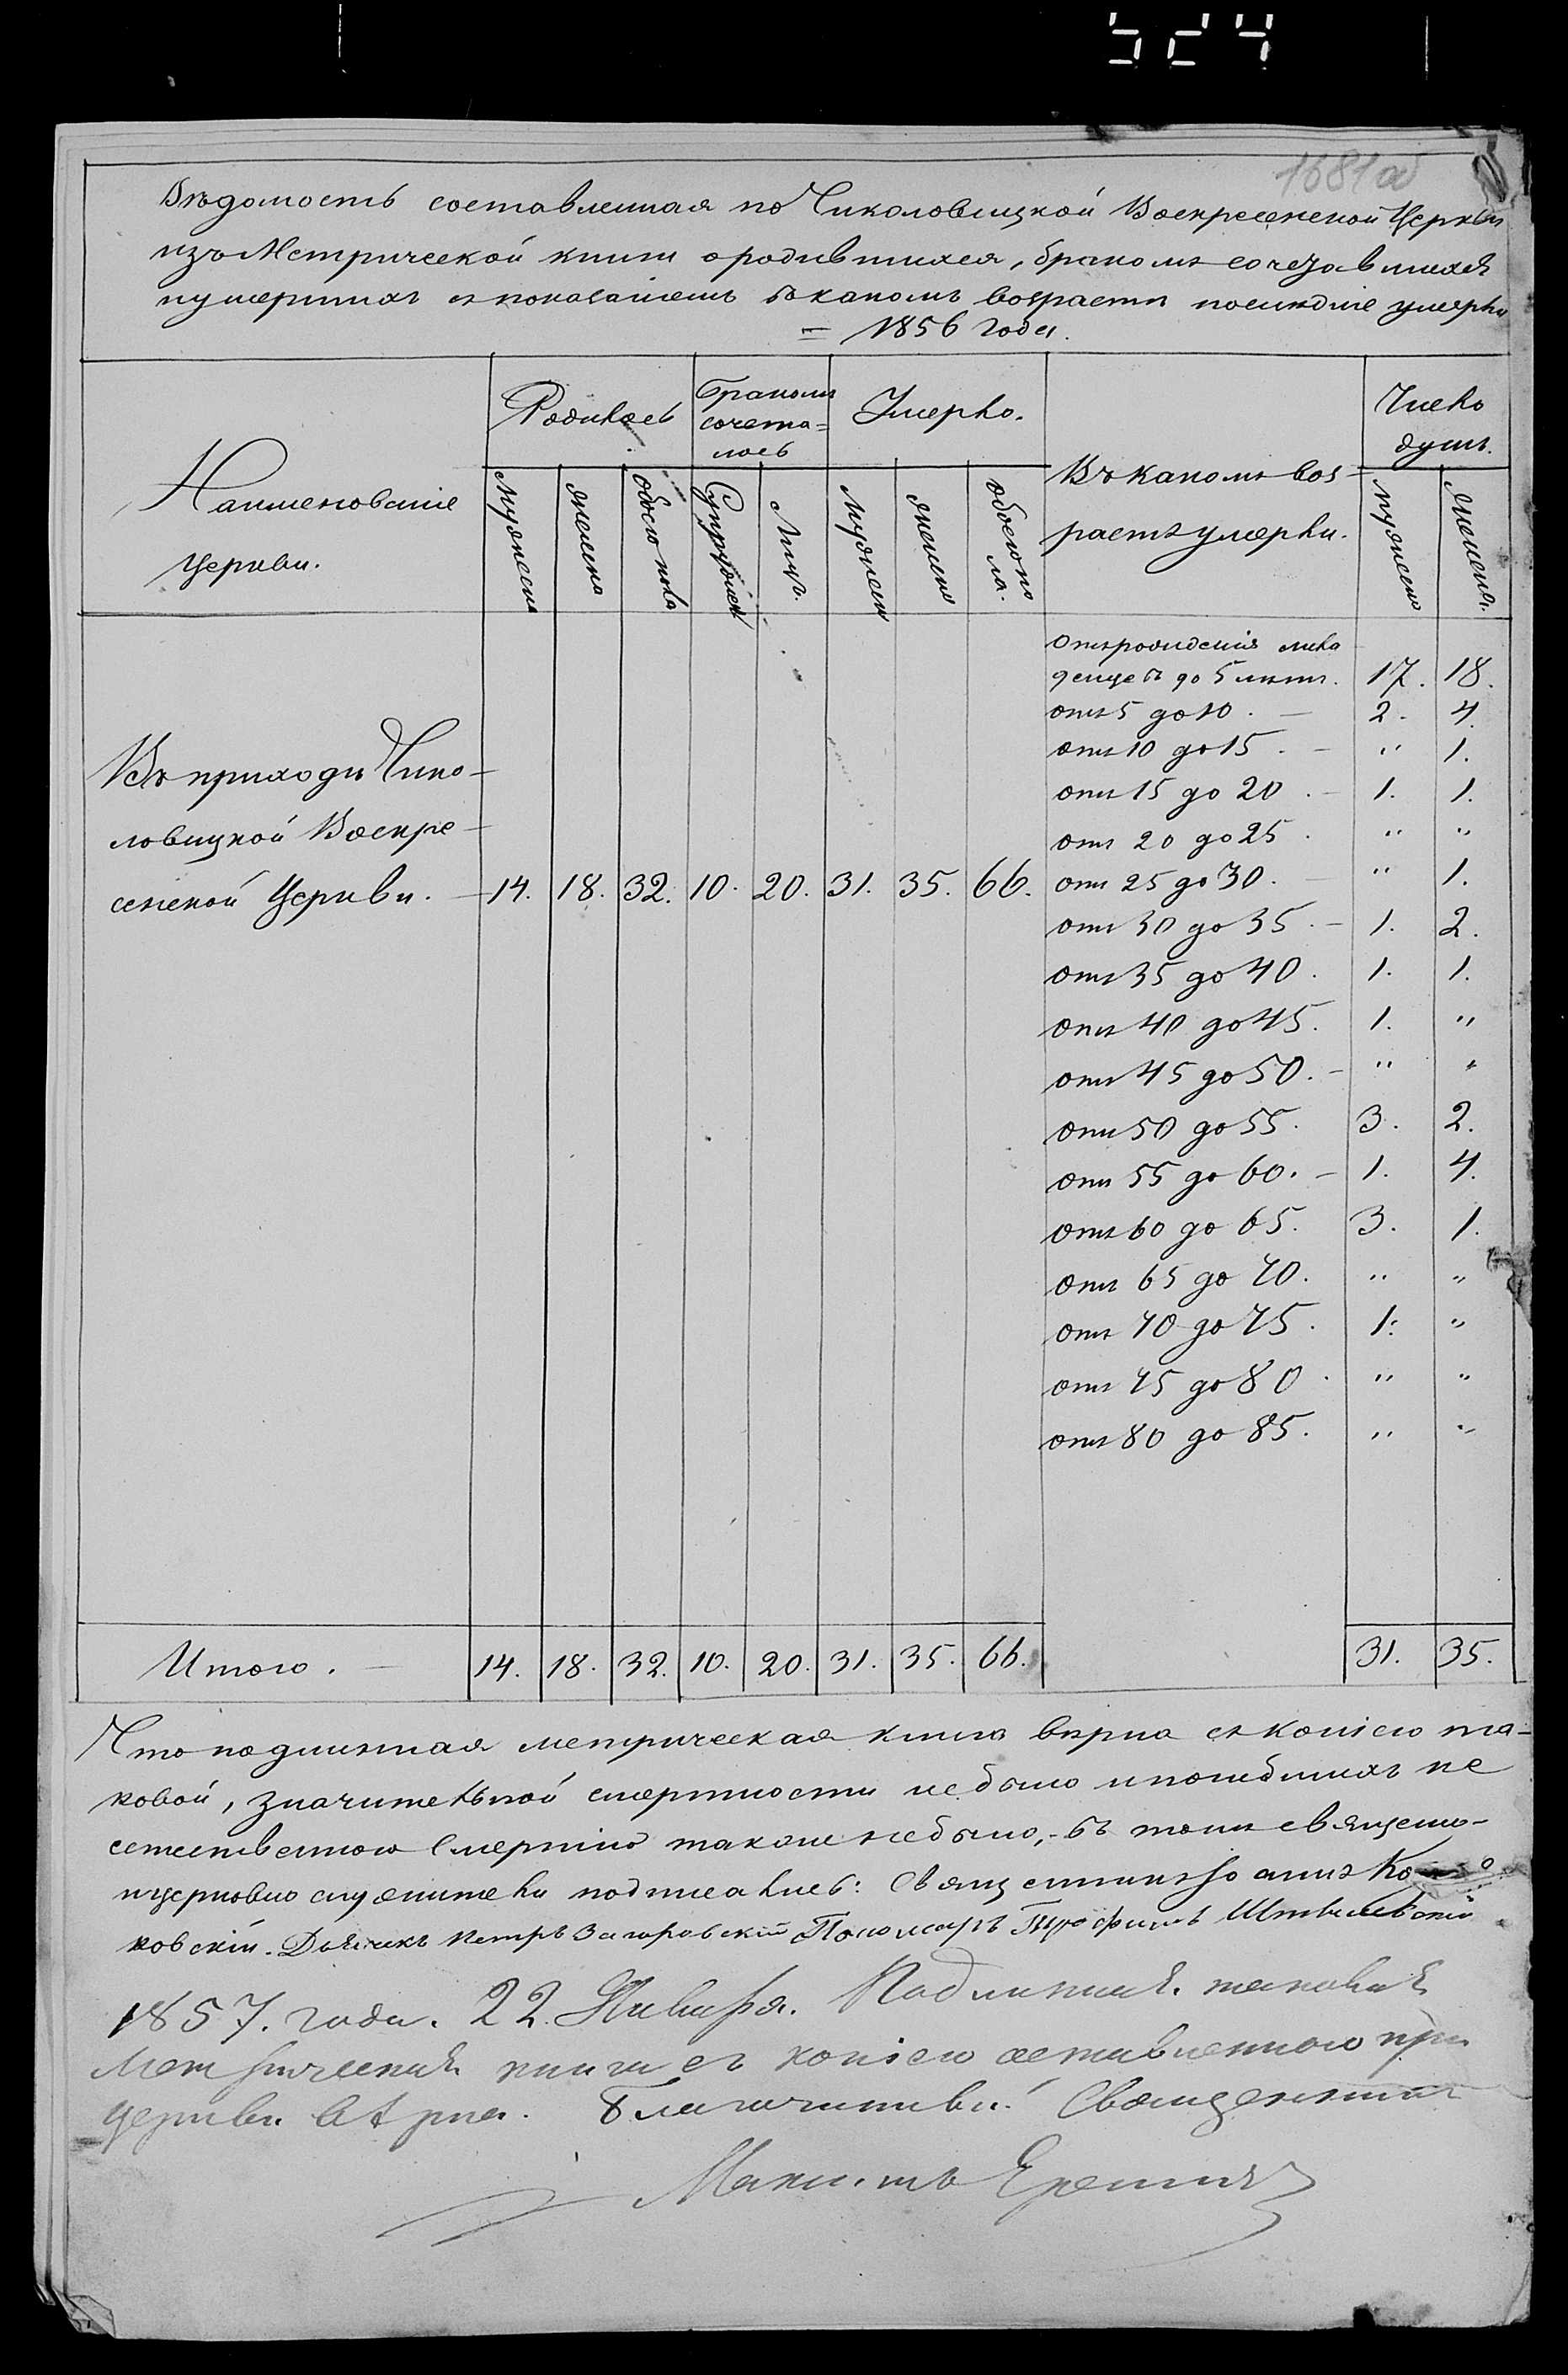 524
1681 об
Вѣдомость составленная по Чиколовицкой Воскресенской Церкви
изъ Метрической книги о родившихся, бракомъ сочетавшихся
и умершихъ съ показаніемъ въ какомъ возрастѣ послѣдніе умерли
= 1856 Года.
Наименованіе
Церкви.
Родилось
Бракомъ
сочета=
лось
Умерло.
Въ какомъ воз-
растѣ умерли.
Число
душъ.
Мужеска
женска
обоего пола
Супружест
Лицъ.
Мужеска
женска
обоего по
ла.
Мужеска
Женска.
Въ приходѣ Чико-
ловицкой Воскре-
сенской Церкви. - 14. 18. 32. 10. 20. 31. 35. 66.
Отъ рожденія мла
денцевъ до 5 лѣтъ. 17. 18.
отъ 5 до 10. — 2. 4.
отъ 10 до 15. — " 1.
отъ 15 до 20. — 1. 1.
отъ 20 до 25. " "
отъ 25 до 30. — " 1.
отъ 30 до 35. — 1. 2.
отъ 35 до 40. 1. 1.
отъ 40 до 45. 1. "
отъ 45 до 50. — " "
отъ 50 до 55. 3. 2.
отъ 55 до 60. — 1. 4.
отъ 60 до 65. 3. 1.
отъ 65 до 70. " "
отъ 70 до 75. 1. "
отъ 75 до 80. " "
отъ 80 до 85. " "
Итого. — 14. 18. 32. 10. 20. 31. 35. 66. 31. 35.
Что подлинная метрическая книга вѣрна съ копіею та-
ковой, значительной смертности не было и погибшихъ не
естественною смертію также не было, - въ томъ священно-
и церковно служители подписались: Священникъ
ковскій. Дьячекъ Петръ Загоровскій Пономарь Трофимъ
1857. года. 22 Января. Подлинная таковая
Метрическая книга съ копіею оставленною при
Церкви вѣрна. Благочинный Священникъ